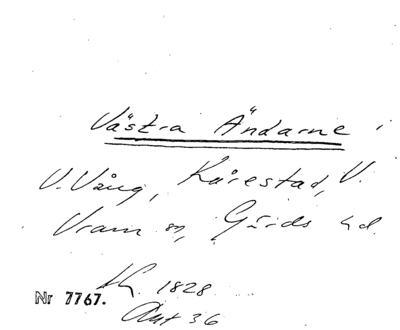 Västra Ändarne i
V. Vång, Kårestad, V.
Vram sn, Gärds hd.
1828
Nr 7767.
Akt 36